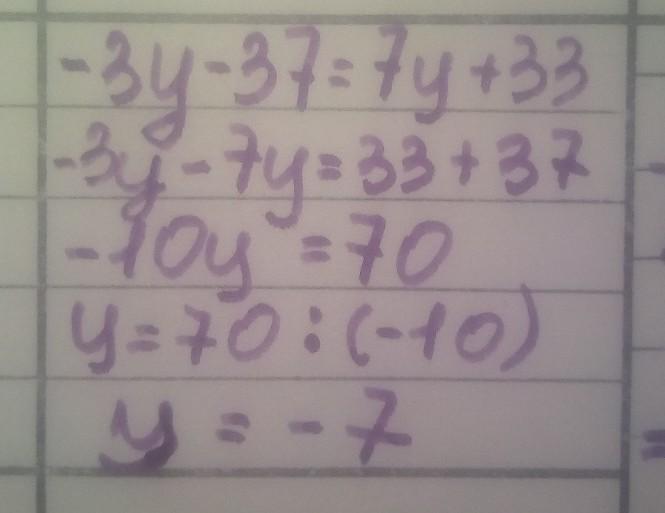 -3y-37=7y+33
-3y-7y=33+37
-10y=70
y=70:(-10)
y=-7